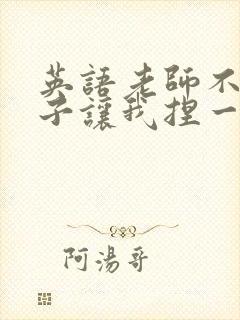 英語老師不
子讓我捏一
阿湯哥